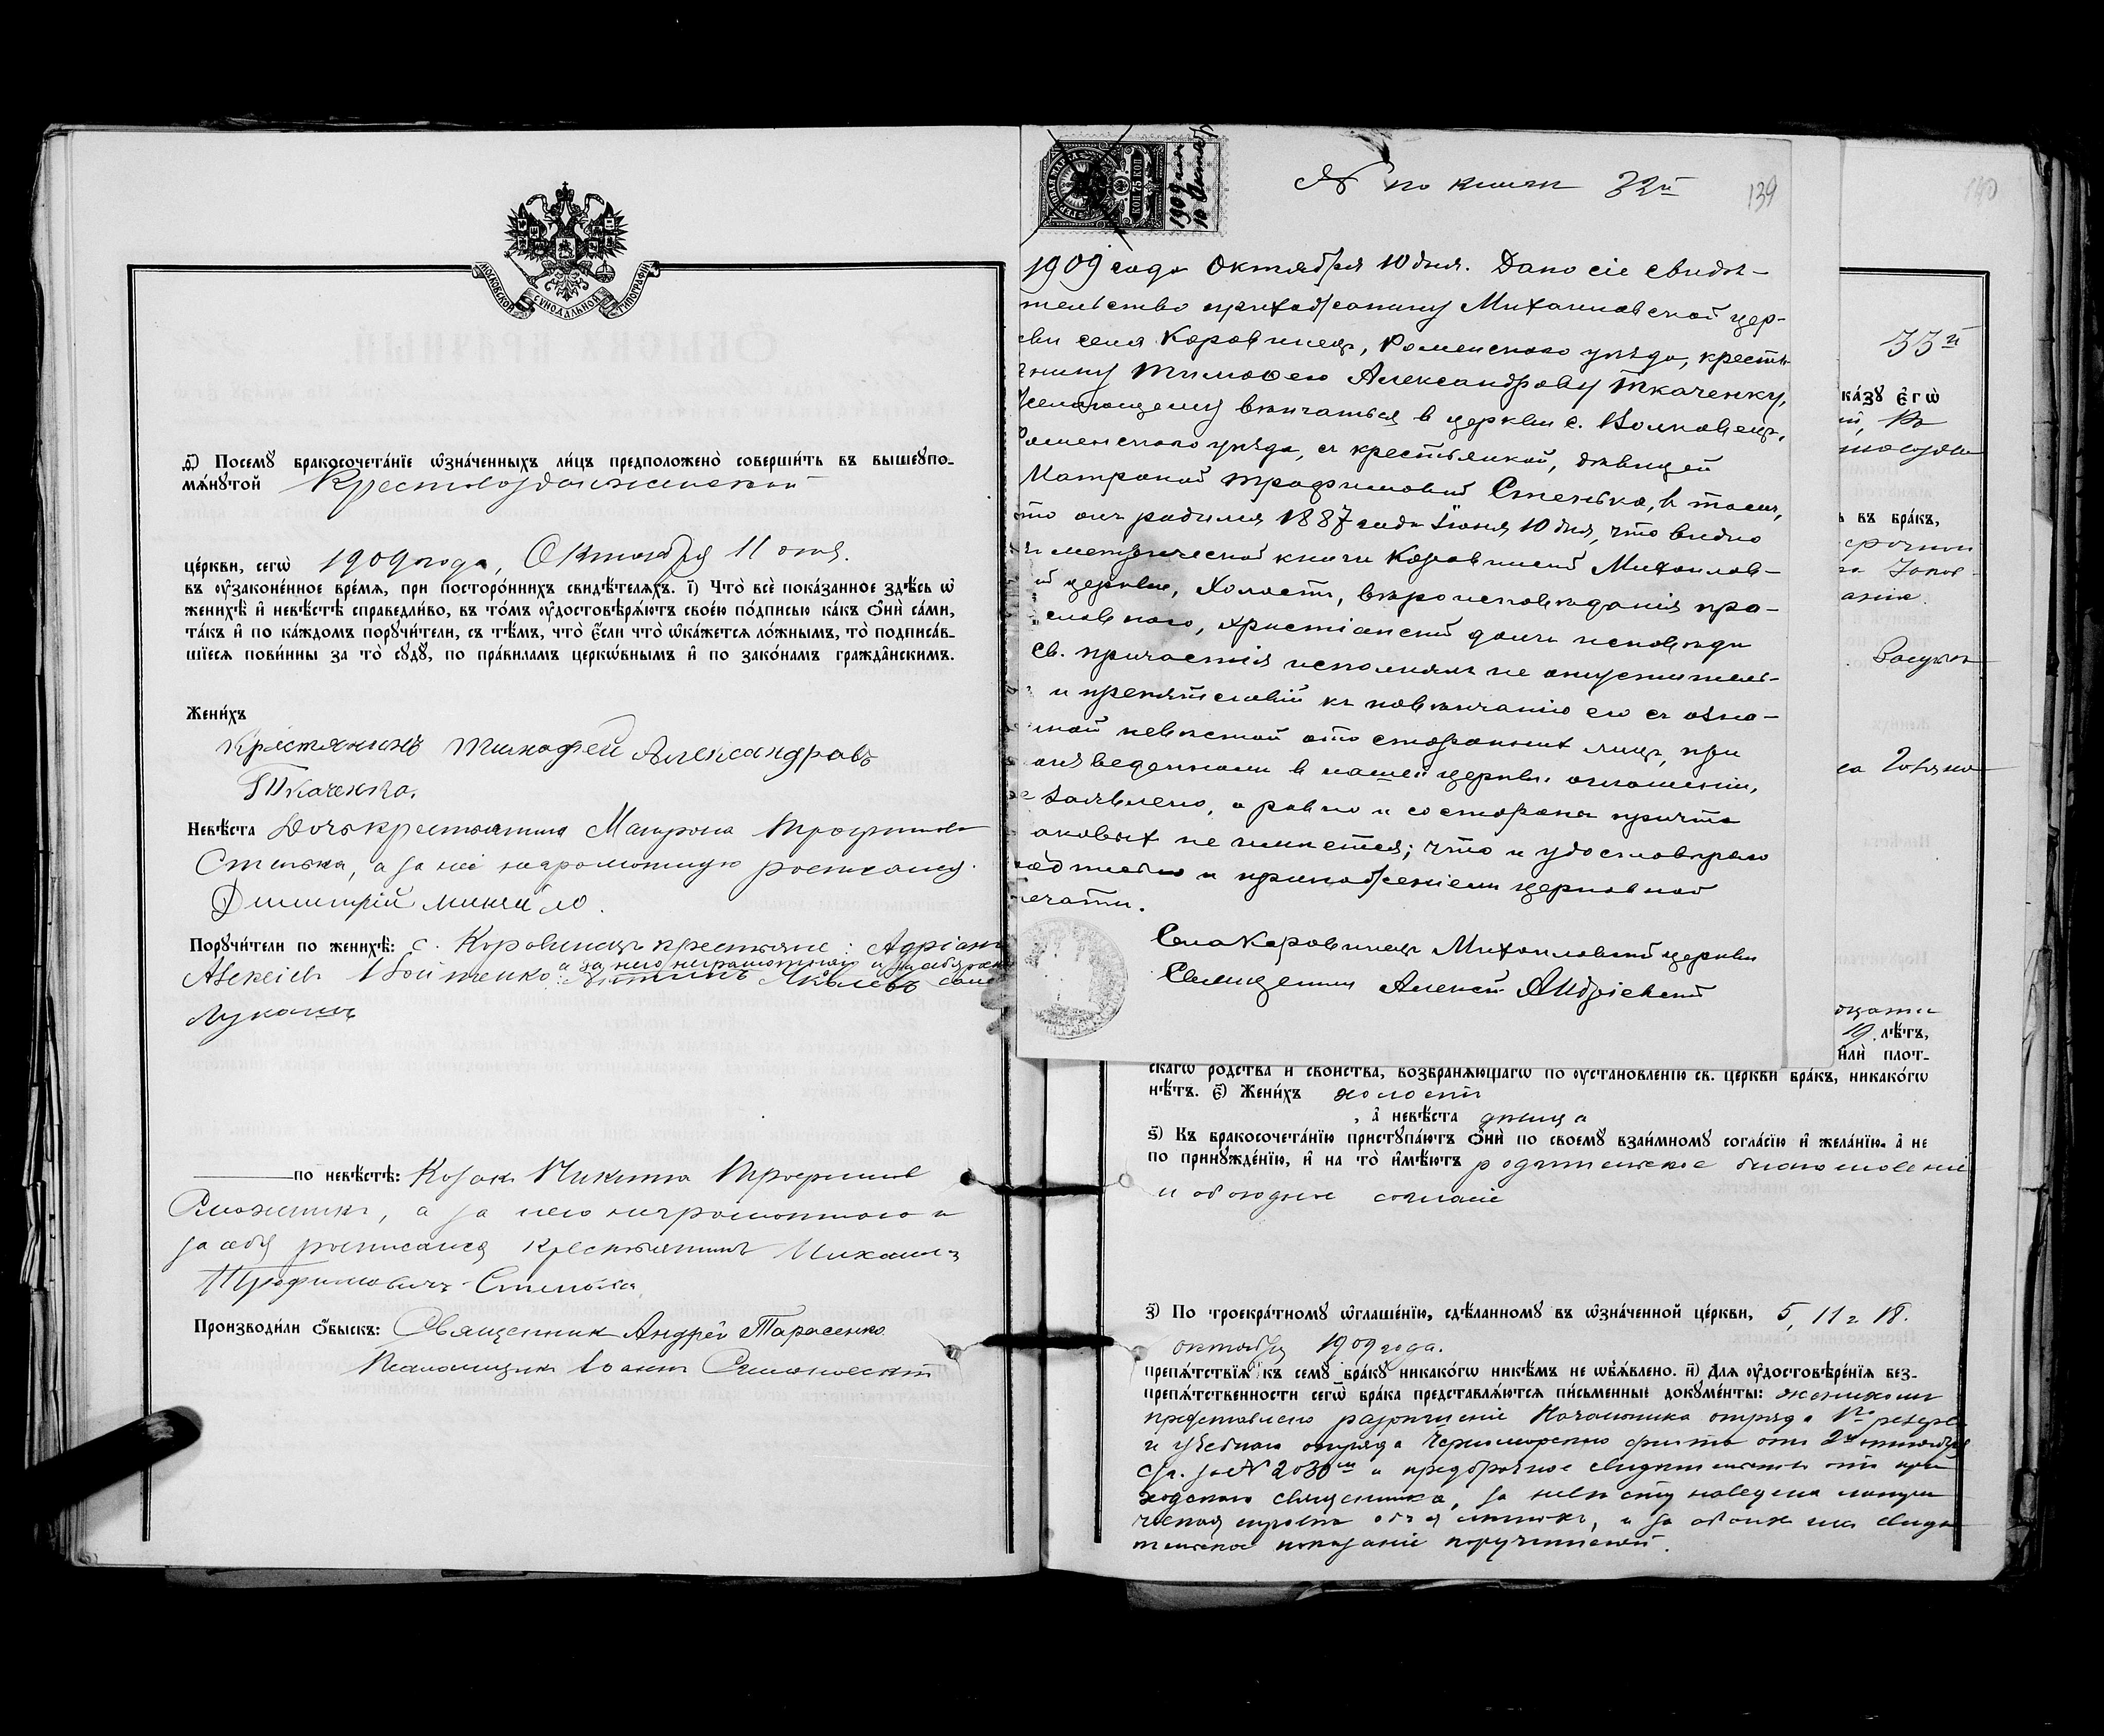 МОСКОВСКОЙ СѴНОДАЛЬНОЙ ТИПОГРАФІИ
д҃) Посемꙋ̀ бракосочета́нїе ѡ҆зна́ченныхъ ли́цъ предположено̀ соверши́ть въ вышеꙋпо-
мѧ́нꙋтой Крестовоздвиженской
це́ркви, сегѡ̀ 1909 года, Октября 11 дня.
въ ᲂу҆зако́ненное вре́мѧ, при посторо́ннихъ свидѣ́телѧхъ. і҃) Что̀ всѐ пока́занное здѣ́сь ѡ҆
женихѣ̀ и҆ невѣ́стѣ справедли́во, въ то́мъ ᲂу҆достовѣрѧ́ютъ свое́ю по́дписью ка́къ ѻ҆нѝ са́ми,
та́къ и҆ по ка́ждомъ порꙋчи́тели, съ тѣ́мъ, что̀ є҆́сли что̀ ѡ҆ка́жетсѧ ло́жнымъ, то̀ подписа́в-
шїесѧ пови́нны за то̀ сꙋдꙋ̀, по пра́виламъ церкѡ́внымъ и҆ по зако́намъ гражда̑нскимъ.
Жени́хъ
Крестянинъ Тимофей Александровъ
Ткаченко.
Невѣ́ста Дочь крестьянина Матрона Трофимова
Стенька, а за неё неграмотную росписался
Димитрій Минайло.
Порꙋчи́тели по женихѣ̀: с. Коровинецъ крестьяне: Адріанъ
Алексіевъ Войтенко а за него неграмотнаго и за себя
Яковлевъ
Лукашъ
по невѣ́стѣ: Козакъ Никита Трофимовъ
а за него неграмотнаго и
за себя росписался крестьянинъ Михаилъ
Трофимовичъ Стенька.
Производи́ли ѻ҆́быскъ: Священникъ Андрей Тарасенко
Псаломщикъ Іоаннъ
№ по книги 32й
139
75 КОП
1909 года
10 Октября
1909 года Октября 10 дня. Дано сіе свидѣ-
тельство прихожанину Михаиловской цер-
кви села Коровинецъ, Роменскаго уѣзда, кресть-
янину Тимоѳею Александрову Ткаченку,
желающему вѣнчаться в церкви с. Волковецъ,
Роменскаго уѣзда, съ крестьянкой, дѣвицей
Матроной Трофимовой Стенька, в томъ,
что онъ родился 1887 года Іюня 10 дня, что видно
из метрической книги Коровинской Михаилов-
ой церкви, холостъ, вѣроисповѣданія пра-
вославнаго, христіанскій долгъ исповѣди
св. причастія исполнялъ не опустительно
и препятствій къ повѣнчанію его съ озна-
ченной невѣстой ото стороннихъ лицъ, при
произведенномъ в нашей церкви оглашеніи,
не заявлено, а равно и со стороны причта
таковыхъ не имѣется; что и удостовѣряю
подписью и приложеніемъ церковной
печати.
Села Коровинецъ Михаиловской церкви
Священникъ Алексѣй Андріевскій
140
33й
ка́зꙋ є҆гѡ̀
въ бра́къ,
19 лѣ́тъ,
и҆лѝ плот-
скагѡ родства̀ и҆ сво́йства, возбранѧ́ющагѡ по ᲂу҆становле́нїю св. це́ркви бра́къ, никако́гѡ
нѣ́тъ. є҃) Жени́хъ холостъ
, а҆ невѣ́ста дѣвица
ѕ҃) Къ бракосочета́нїю пристꙋпа́ютъ ѻ҆нѝ по своемꙋ̀ взаи́мномꙋ согла́сїю и҆ жела́нїю, а҆ не
по принꙋжде́нїю, и҆ на то̀ и҆мѣ́ютъ родительское благословеніе
и обоюдное согласіе
з҃) По троекра́тномꙋ ѡ҆глаше́нїю, сдѣ́ланномꙋ въ ѡ҆зна́ченной це́ркви, 5, 11 и 18.
октября 1909 года.
препѧ́тствїѧ къ семꙋ̀ бра́кꙋ никако́гѡ никѣ́мъ не ѡ҆б̾ѧ́влено. и҃) Длѧ ᲂу҆достовѣре́нїѧ без-
препѧ́тственности сегѡ̀ бра́ка представлѧ́ютсѧ пи́сьменные докꙋме́нты: женихомъ
представлено разрѣшеніе Начальника отряда
и учебнаго отряда Черноморскаго флота отъ 2го октября
с/г. за № 2030м и предбрачное свидѣтельство отъ при
ходскаго священника, за невѣсту наведена метри
ческая справка о и за обоихъ свидѣ
тельское показаніе поручителей.